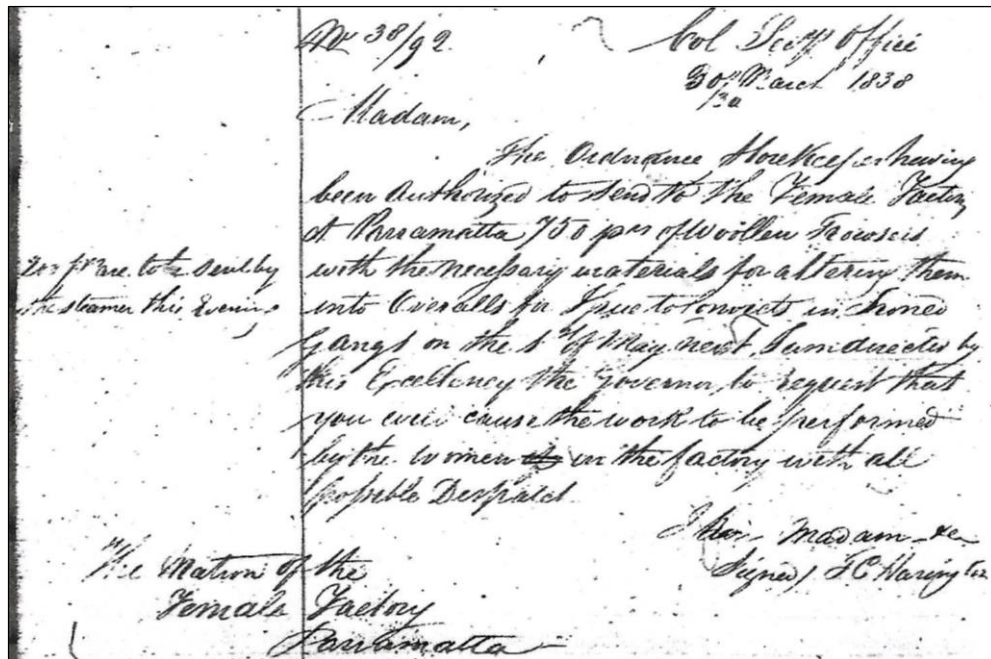 38/92
Col Secys Office
30 March 1838
Madam,
The Ordnance Storekeeper having
been authorized to send to the Female Factory
at Parramatta 750 prs of Woollen Trowsers
with the necessary materials for altering them
into Overalls for Issue to Convicts in Ironed
Gangs on the 1st of May next, I am directed by
His Excellency the Governor, to request that
you will cause the work to be performed
by the Women in the factory with all
possible Despatch
to be sent by
the steamer this Evening
I have Madam &c
Signed / T C Harington
The Matron of the
Female Factory
Parramatta